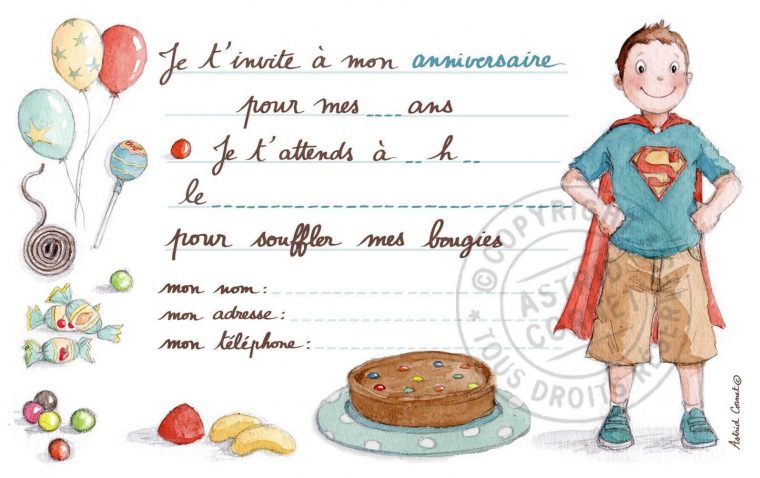 Je t'invite à mon anniversaire
pour mes ____ ans
Je t'attends à __ h __
le
pour souffler mes bougies
mon nom :
mon adresse :
mon téléphone :
S
© COPYRIGHT
ASTRID
CORNET
* TOUS DROITS RÉSER
Astrid Cornet ©